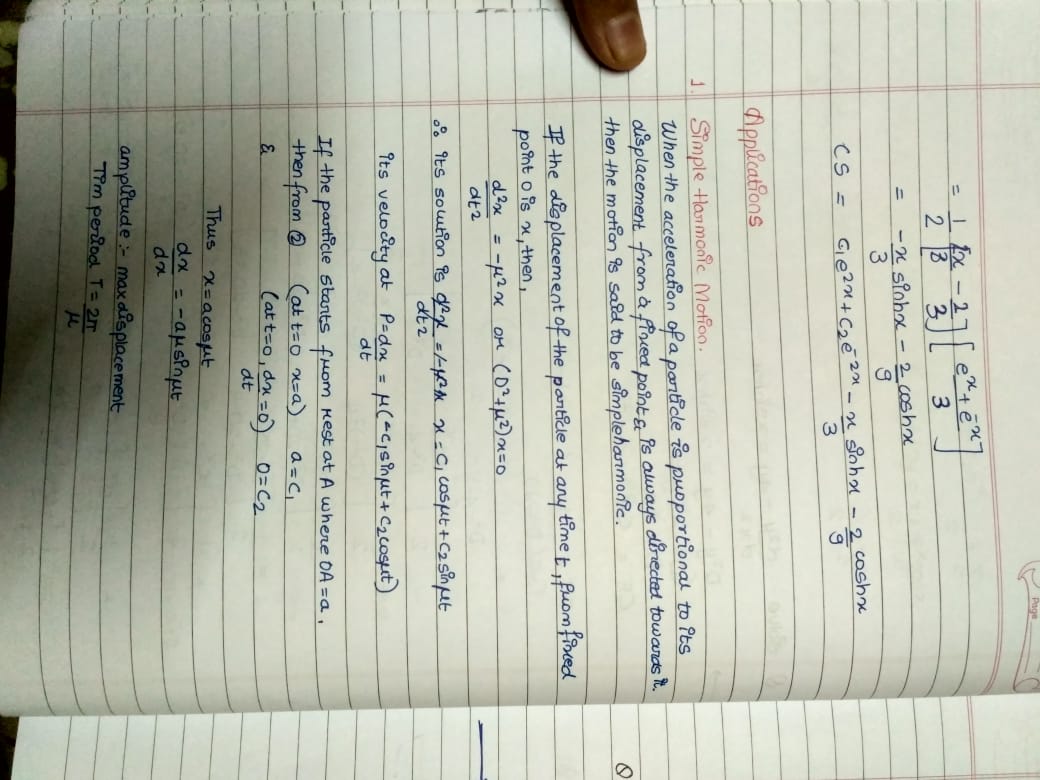 Page
= 1/2 [2x/3 - 2/3] [ e^x + e^-x / 3 ]
= -x/3 sinhx - 2/9 coshx
CS = C1e^2x + C2e^-2x - x/3 sinhx - 2/9 coshx
Applications
1. Simple Harmonic Motion.
When the acceleration of a particle is proportional to its
displacement from a fixed point & is always directed towards it.
then the motion is said to be simpleharmonic.
If the displacement of the particle at any time t, from fixed
point O is x, then,
d²x/dt2 = -μ²x or (D²+μ²)x=0
∴ its solution is d²x/dt2 = -μ²x x = C1 cosμt + C2 sinμt
its velocity at P = dx/dt = μ(-C1sinμt + C2cosμt)
If the particle starts from rest at A where OA = a,
then from ② (at t=0 x=a) a=C1
& (at t=0, dx/dt =0) 0=C2
Thus x=acosμt
dx/dx = -aμsinμt
amplitude :- max displacement
Tim period T = 2π/μ